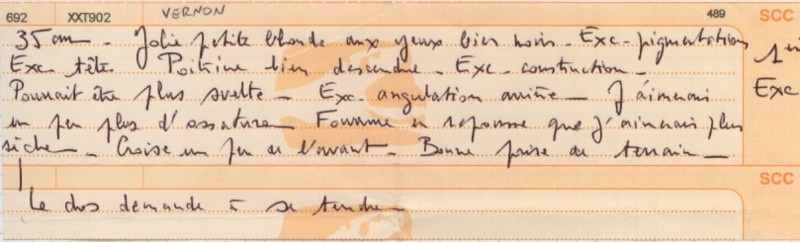 692 XXT902 VERNON 489 SCC
35 cm - Jolie petite blonde aux yeux bien noirs - Exc. pigmentation
Exc. tête. Poitrine bien descendue - Exc. construction - Exc
Pourrait être plus svelte - Exc. angulation arrière - J'aimerai
un peu plus d'ossature Fourrure en repousse que j'aimerais plus
sèche - Croise un peu de l'avant - Bonne prise de terrain -
SCC
Le dos demande à se tendre